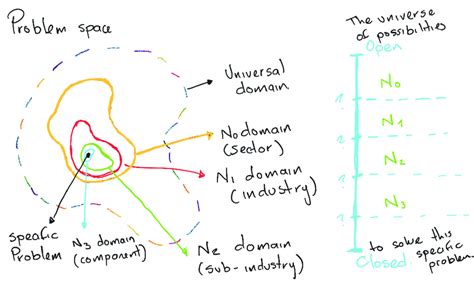 Problem space
Universal
domain
No domain
(sector)
N1 domain
(industry)
N2 domain
(sub-industry)
N3 domain
(component)
specific
Problem
The universe
of possibilities
Open
No
N1
N2
N3
?
?
?
?
to solve this
specific
problem
Closed